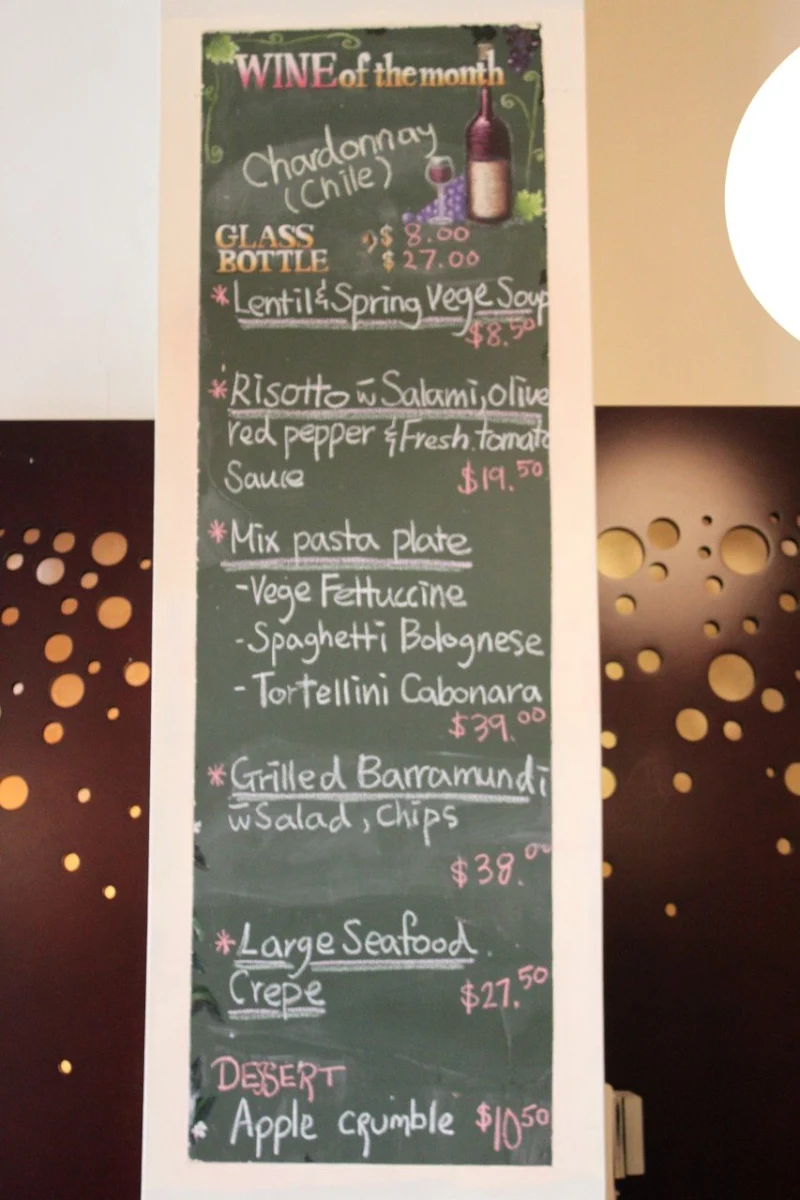 WINE of the month
Chardonnay
(Chile)
GLASS $ 8.00
BOTTLE $ 27.00
* Lentil & Spring Vege Soup
$8.50
* Risotto w̄ Salami, olive
red pepper & Fresh tomato
Sauce $19.50
* Mix pasta plate
- Vege Fettuccine
- Spaghetti Bolognese
- Tortellini Cabonara
$39.00
* Grilled Barramundi
w̄ Salad, Chips
$38.00
* Large Seafood
Crepe $27.50
DESSERT
* Apple crumble $10.50